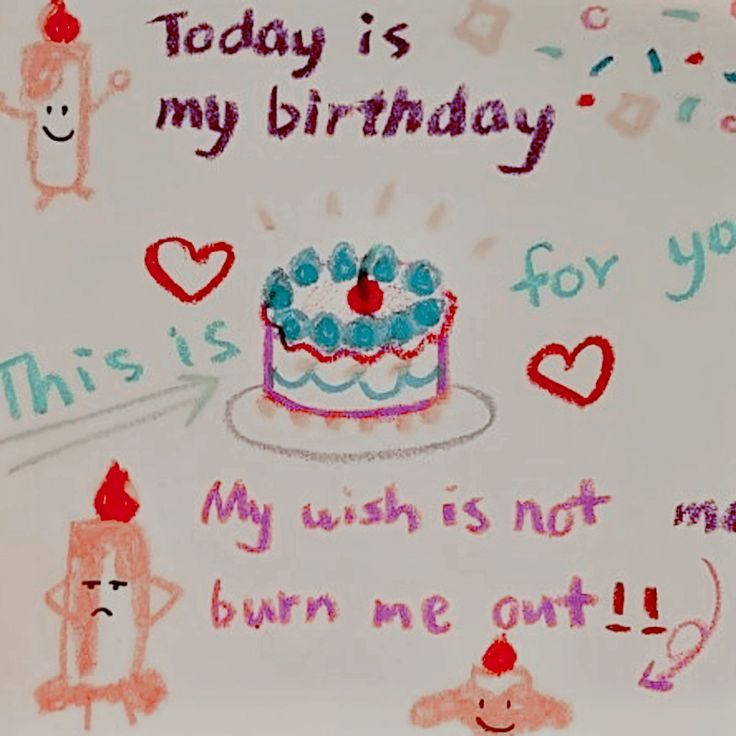 Today is
my birthday
This is
for yo
My wish is not
me
burn me out!!